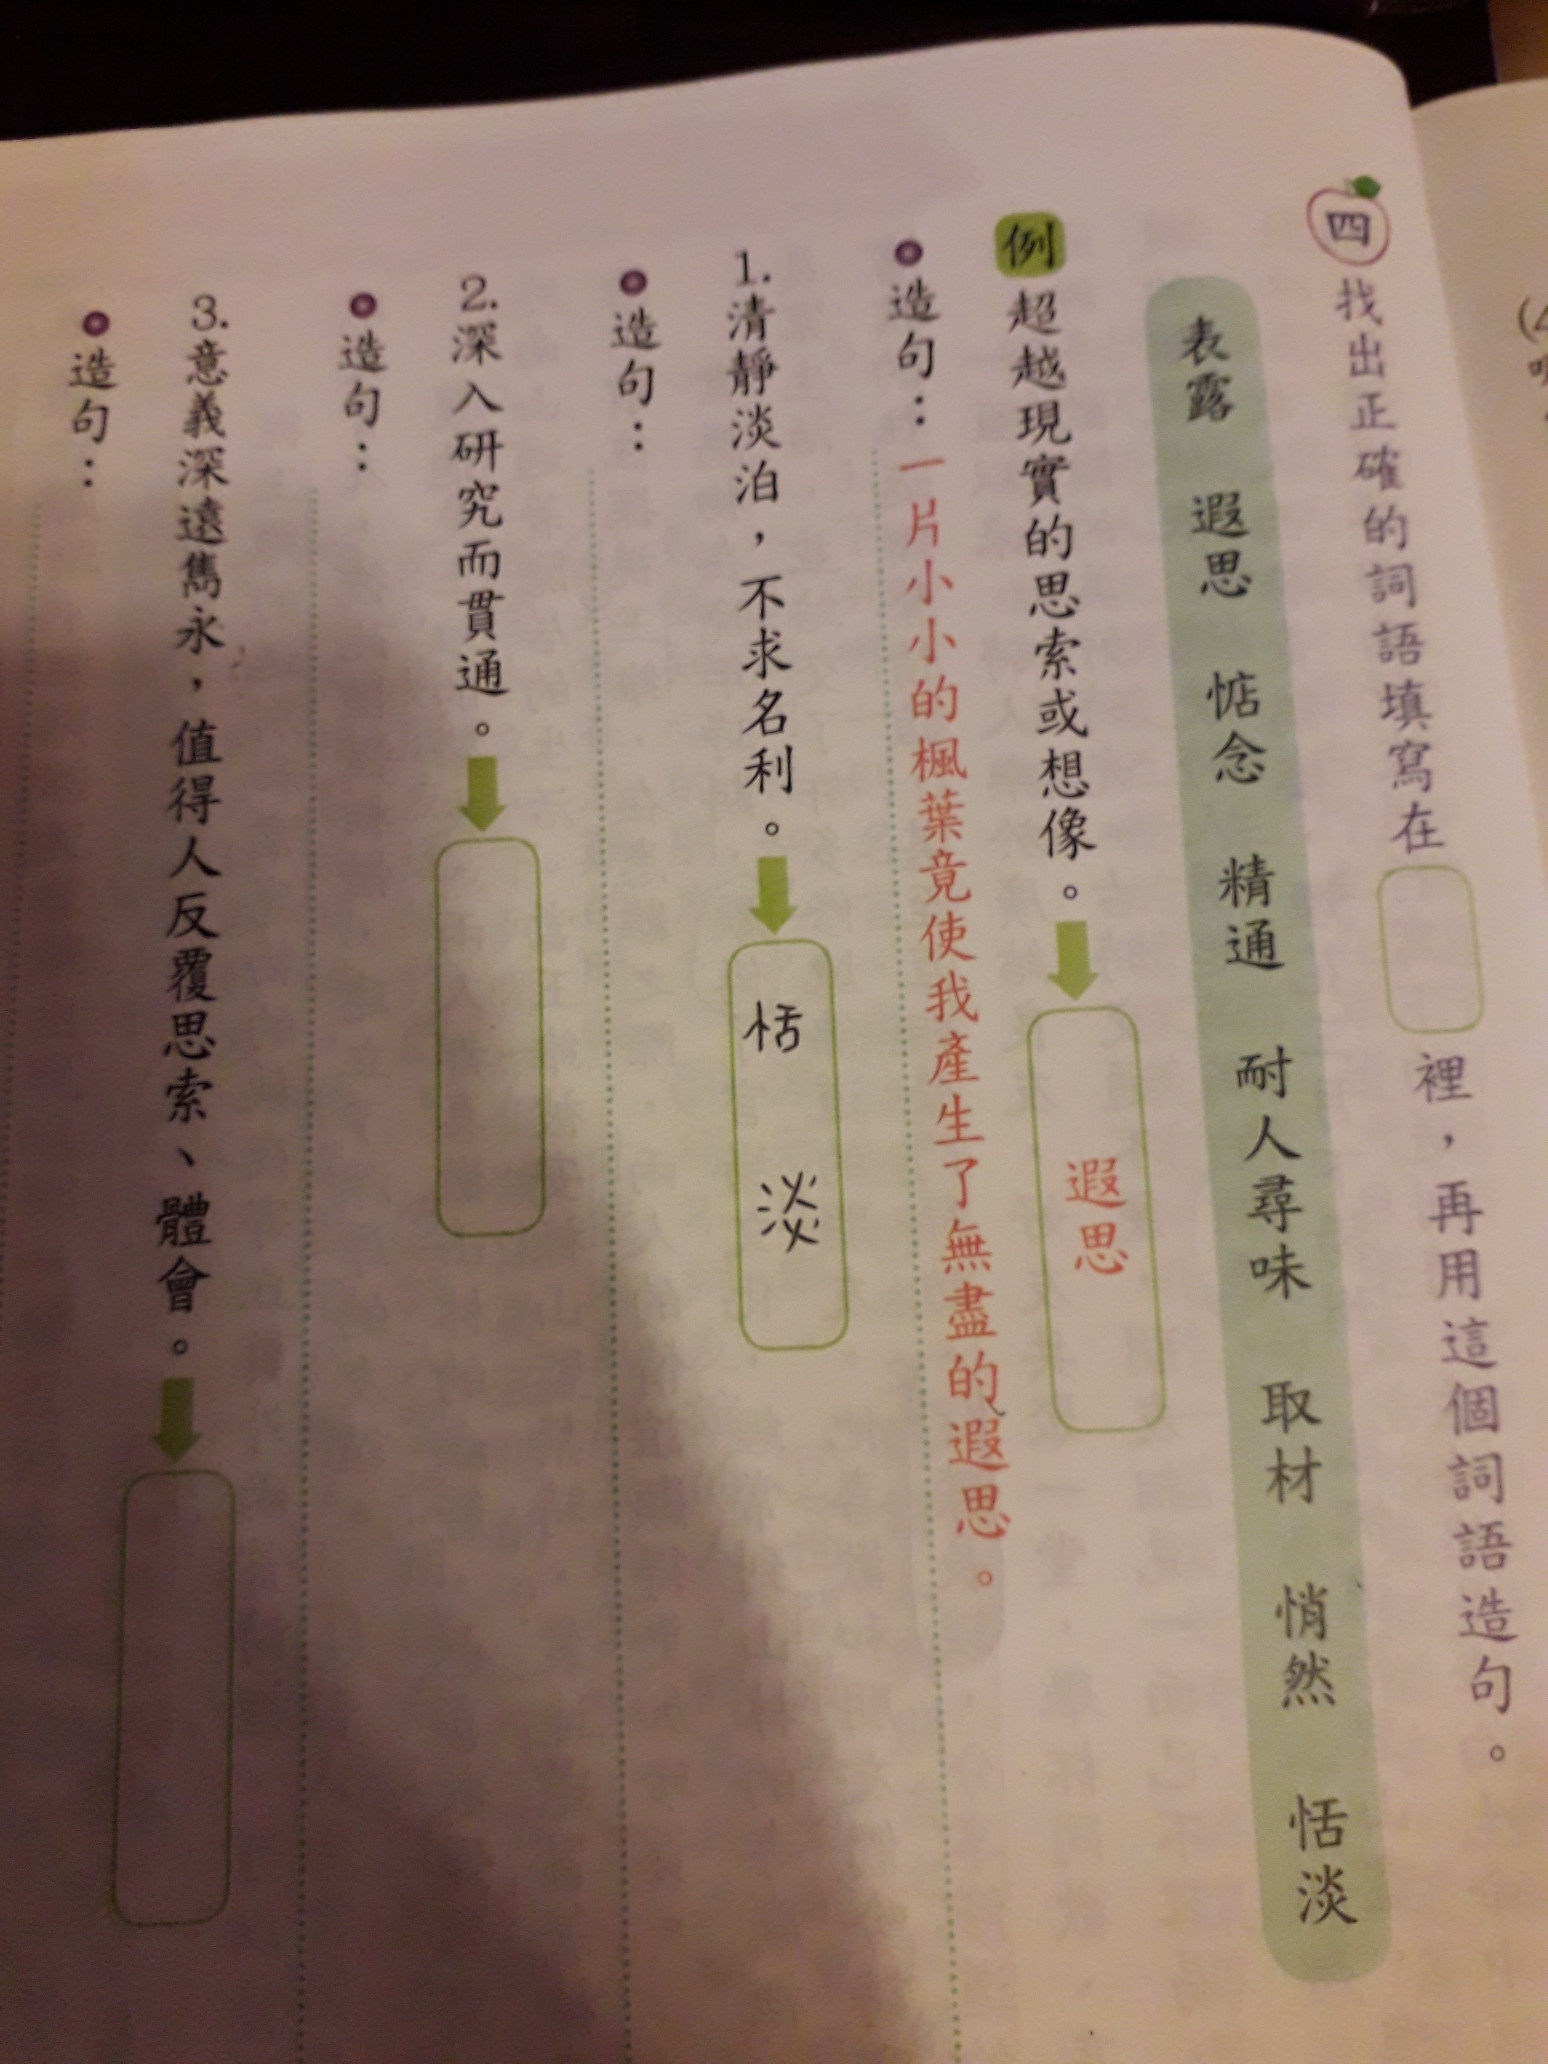 四 找出正確的詞語填寫在 裡，再用這個詞語造句。
表露 遐思 惦念 精通 耐人尋味 取材 悄然 恬淡
例 超越現實的思索或想像。 遐思
造句：一片小小的楓葉竟使我產生了無盡的遐思。
1. 清靜淡泊，不求名利。 恬淡
造句：
2. 深入研究而貫通。
造句：
3. 意義深遠雋永，值得人反覆思索、體會。
造句：